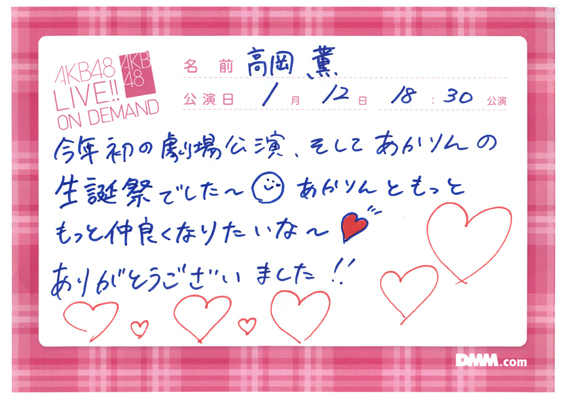 AKB48
LIVE!!
ON DEMAND
AKB
48
名前 高岡 薫
公演日 1月 12日 18:30 公演
今年初の劇場公演、そしてあかりんの
生誕祭でした〜 あかりんともっと
もっと仲良くなりたいな〜
ありがとうございました!!
DMM.com